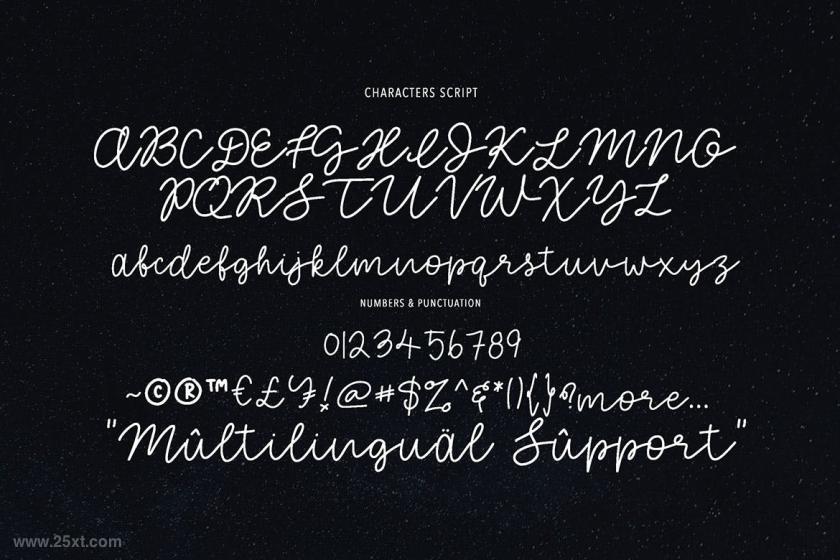 CHARACTERS SCRIPT
ABCDEFGHIJKLMNO
PQRSTUVWXYZ
abcdefghijklmnopqrstuvwxyz
NUMBERS & PUNCTUATION
0123456789
~©®™€£¥!@#$%^&*(){}?more...
"Mûltilinguäl Sûpport"
www.25xt.com